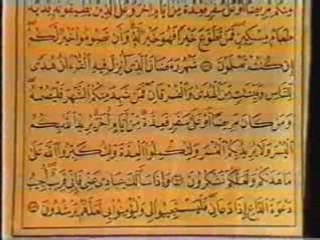 منكم مريضا أو على سفر فعدة من أيام أخر وعلى الذين يطيقونه فدية
طعام مسكين فمن تطوع خيرا فهو خير له وأن تصوموا خير لكم
إن كنتم تعلمون شهر رمضان الذي أنزل فيه القرآن هدى
للناس وبينات من الهدى والفرقان فمن شهد منكم الشهر فليصمه
ومن كان مريضا أو على سفر فعدة من أيام أخر يريد الله بكم
اليسر ولا يريد بكم العسر ولتكملوا العدة ولتكبروا الله على
ما هداكم ولعلكم تشكرون وإذا سألك عبادي عني فإني قريب أجيب
دعوة الداع إذا دعان فليستجيبوا لي وليؤمنوا بي لعلهم يرشدون